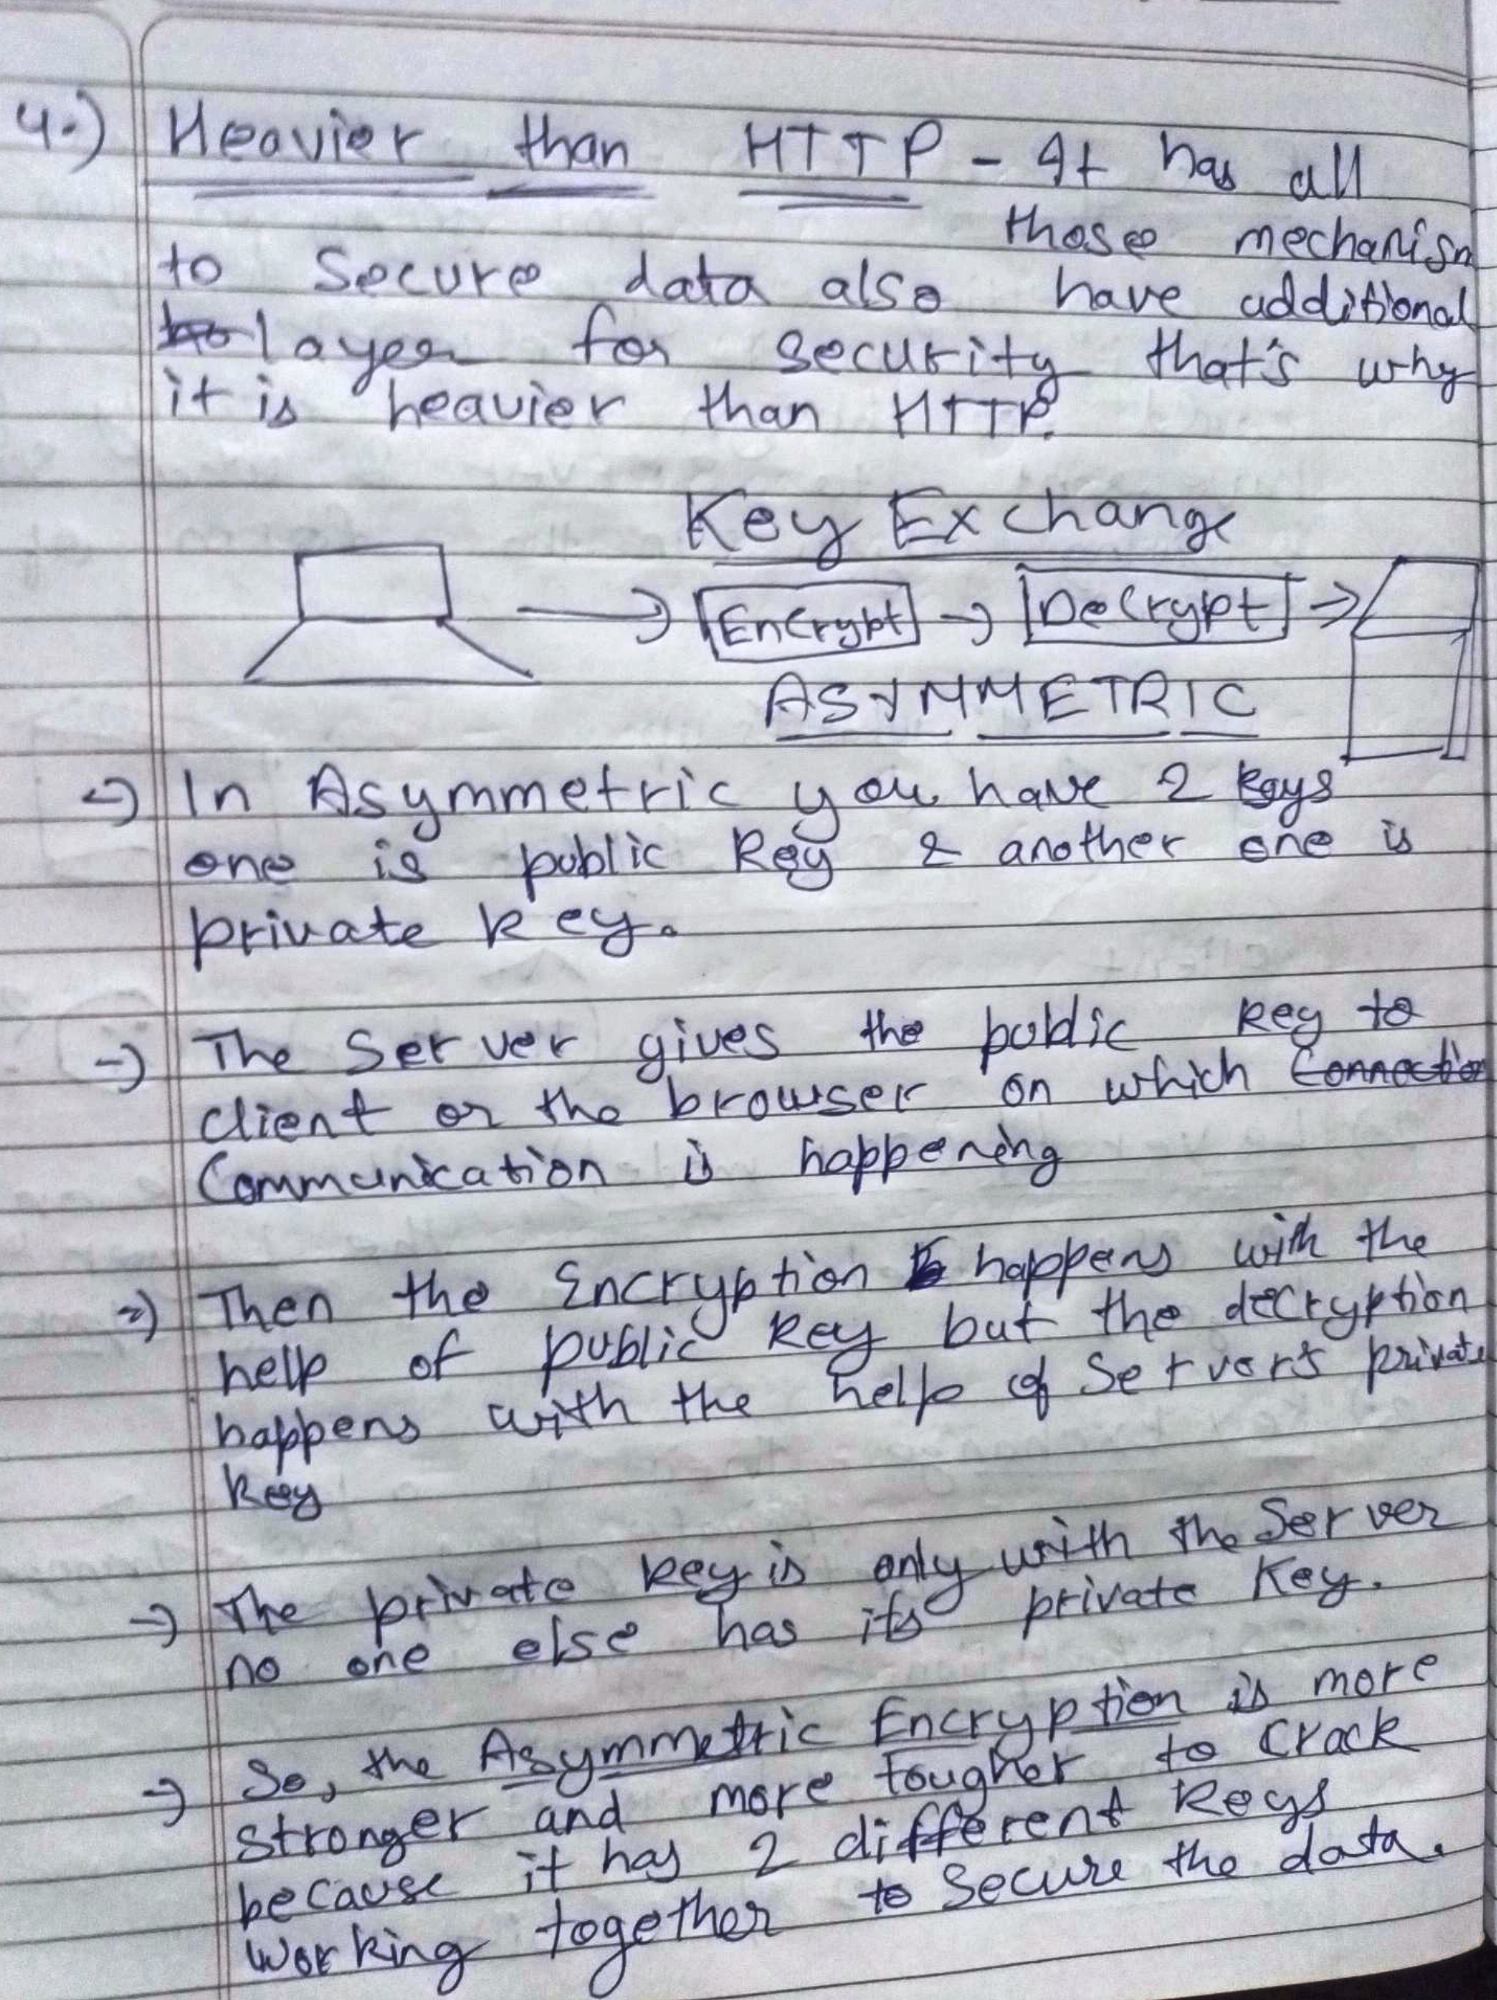 4.) Heavier than HTTP - It has all
those mechanism
to secure data also have additional
layer for security that's why
it is heavier than HTTP.
Key Exchange
Encrypt → Decrypt →
ASYMMETRIC
→ In Asymmetric you have 2 keys
one is public key & another one is
private key.
→ The Server gives the public key to
client or the browser on which Connection
Communication is happening
→ Then the Encryption happens with the
help of public key but the decryption
happens with the help of Server's private
key
→ The private key is only with the Server
no one else has its private key.
→ So, the Asymmetric Encryption is more
stronger and more tougher to crack
because it has 2 different keys
working together to secure the data.